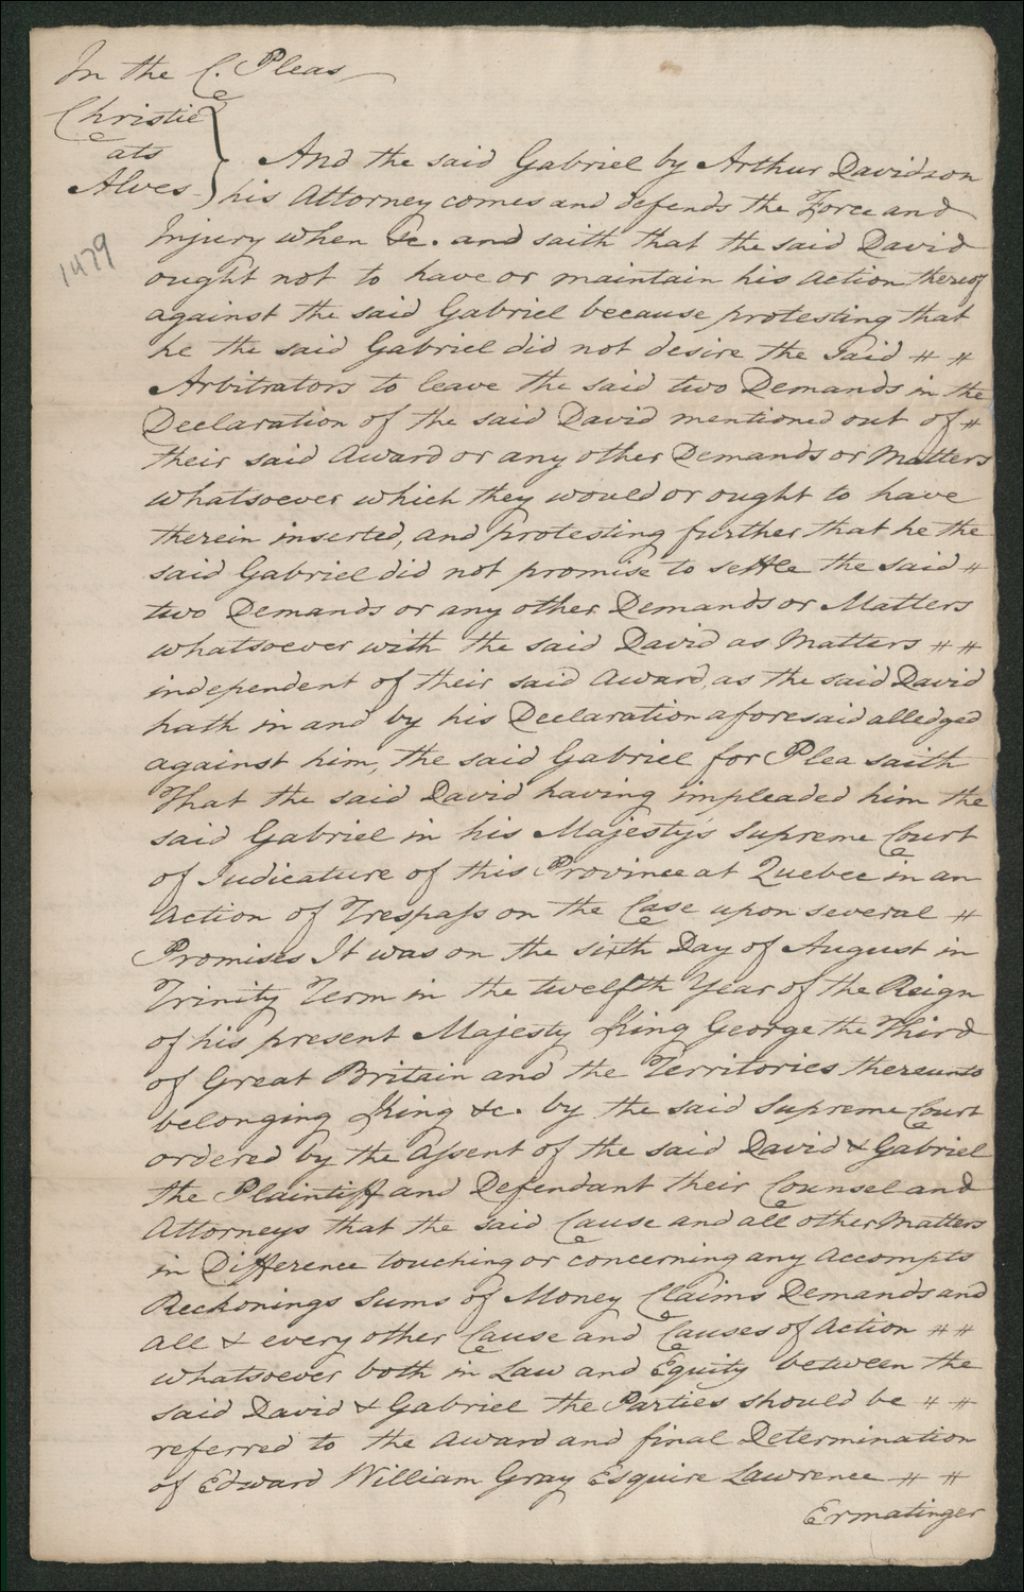 In the C. Pleas
Christie
ats
Alves
1479
And the said Gabriel by Arthur Davidson
his Attorney comes and defends the Force and
Injury when &c. and saith that the said David
ought not to have or maintain his Action thereof
against the said Gabriel because protesting that
he the said Gabriel did not desire the said # #
Arbitrators to leave the said two Demands in the
Declaration of the said David mentioned out of #
their said Award or any other Demands or Matters
whatsoever which they would or ought to have
therein inserted, and protesting further that he the
said Gabriel did not promise to settle the said #
two Demands or any other Demands or Matters
whatsoever with the said David as Matters # #
independent of their said Award, as the said David
hath in and by his Declaration aforesaid alledged
against him, the said Gabriel for Plea saith
That the said David having impleaded him the
said Gabriel in his Majesty's Supreme Court
of Judicature of this Province at Quebec in an
Action of Trespass on the Case upon several #
Promises It was on the sixth Day of August in
Trinity Term in the twelfth Year of the Reign
of his present Majesty King George the Third
of Great Britain and the Territories thereunto
belonging King &c. by the said Supreme Court
ordered by the Assent of the said David & Gabriel
the Plaintiff and Defendant their Counsel and
Attorneys that the said Cause and all other Matters
in Difference touching or concerning any Accompts
Reckonings Sums of Money Claims Demands and
all & every other Cause and Causes of Action # #
whatsoever both in Law and Equity between the
said David & Gabriel the Parties should be # #
referred to the Award and final Determination
of Edward William Gray Esquire Lawrence # #
Ermatinger